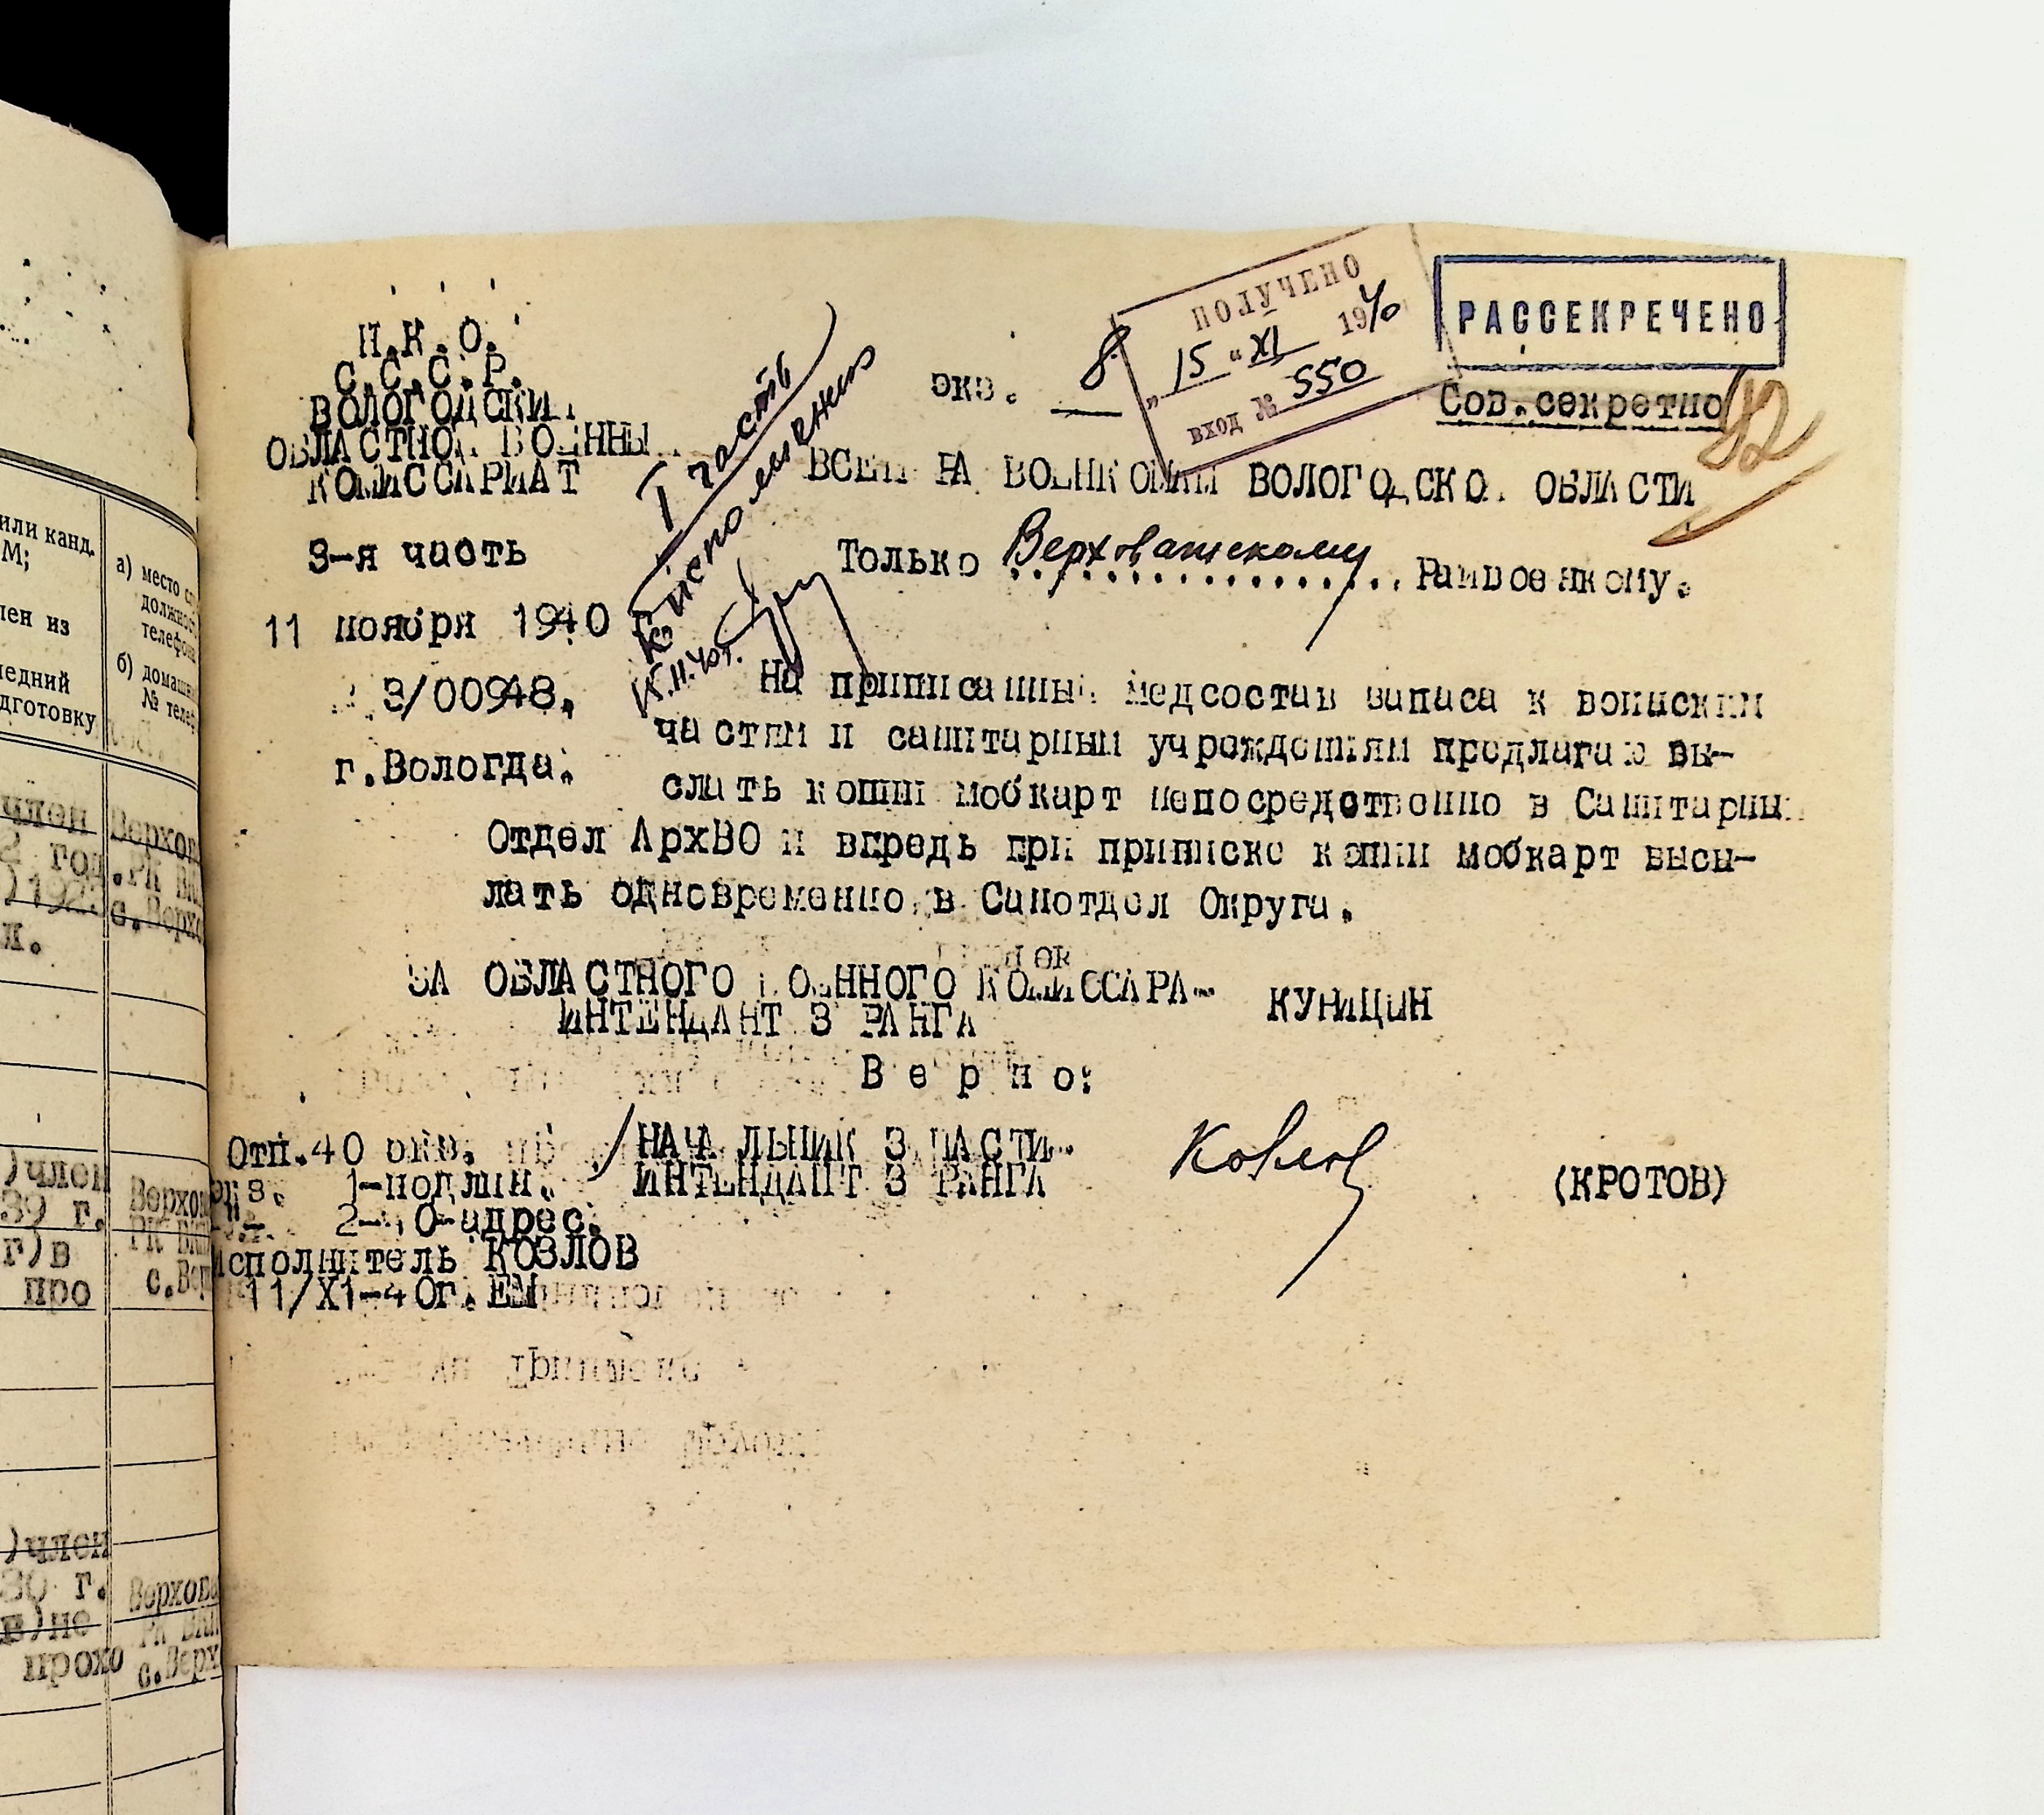 Н.К.О.
С.С.С.Р.
ВОЛОГОДСКИЙ
ОБЛАСТНОЙ ВОЕННЫЙ
КОМИССАРИАТ
3-я часть
11 ноября 1940 г.
3/00948.
г.Вологда.
I часть
К исполнению
15.11.40г.
экз. 8
ПОЛУЧЕНО
„15“ XI 1940
вход № 550
РАССЕКРЕЧЕНО
Сов.секретно
ВСЕМ РАЙВОЕНКОМАМ ВОЛОГОДСКОЙ ОБЛАСТИ
Только Верховажскому Райвоенкому.
На приписанный медсостав запаса к воинским
частям и санитарным учреждениям предлагаю вы-
слать копии мобкарт непосредственно в Санитарный
Отдел АрхВО и впредь при приписке копии мобкарт высы-
лать одновременно в Санотдел Округа.
ЗА ОБЛАСТНОГО ВОЕННОГО КОМИССАРА-
ИНТЕНДАНТ 3 РАНГА
КУНИЦИН
В е р н о:
НАЧАЛЬНИК 3 ЧАСТИ-
ИНТЕНДАНТ 3 РАНГА
(КРОТОВ)
Отп.40 экз.
1-подлин.
2-40-адрес.
Исполнитель КОЗЛОВ
11/X1-40г. ЕМ
или канд.
М;
член из
а) место
должнос
телефон
б) домашн
№ телеф
дготовку
член
2 год
)192
л.
Верхов
.РК ВКП
с.Верхо
)член
39 г.
г)в
про
Верхов
РК ВКП
с.Вер
)член
30 г.
в)не
прохо
Верхова
РК ВКП
с.Верх